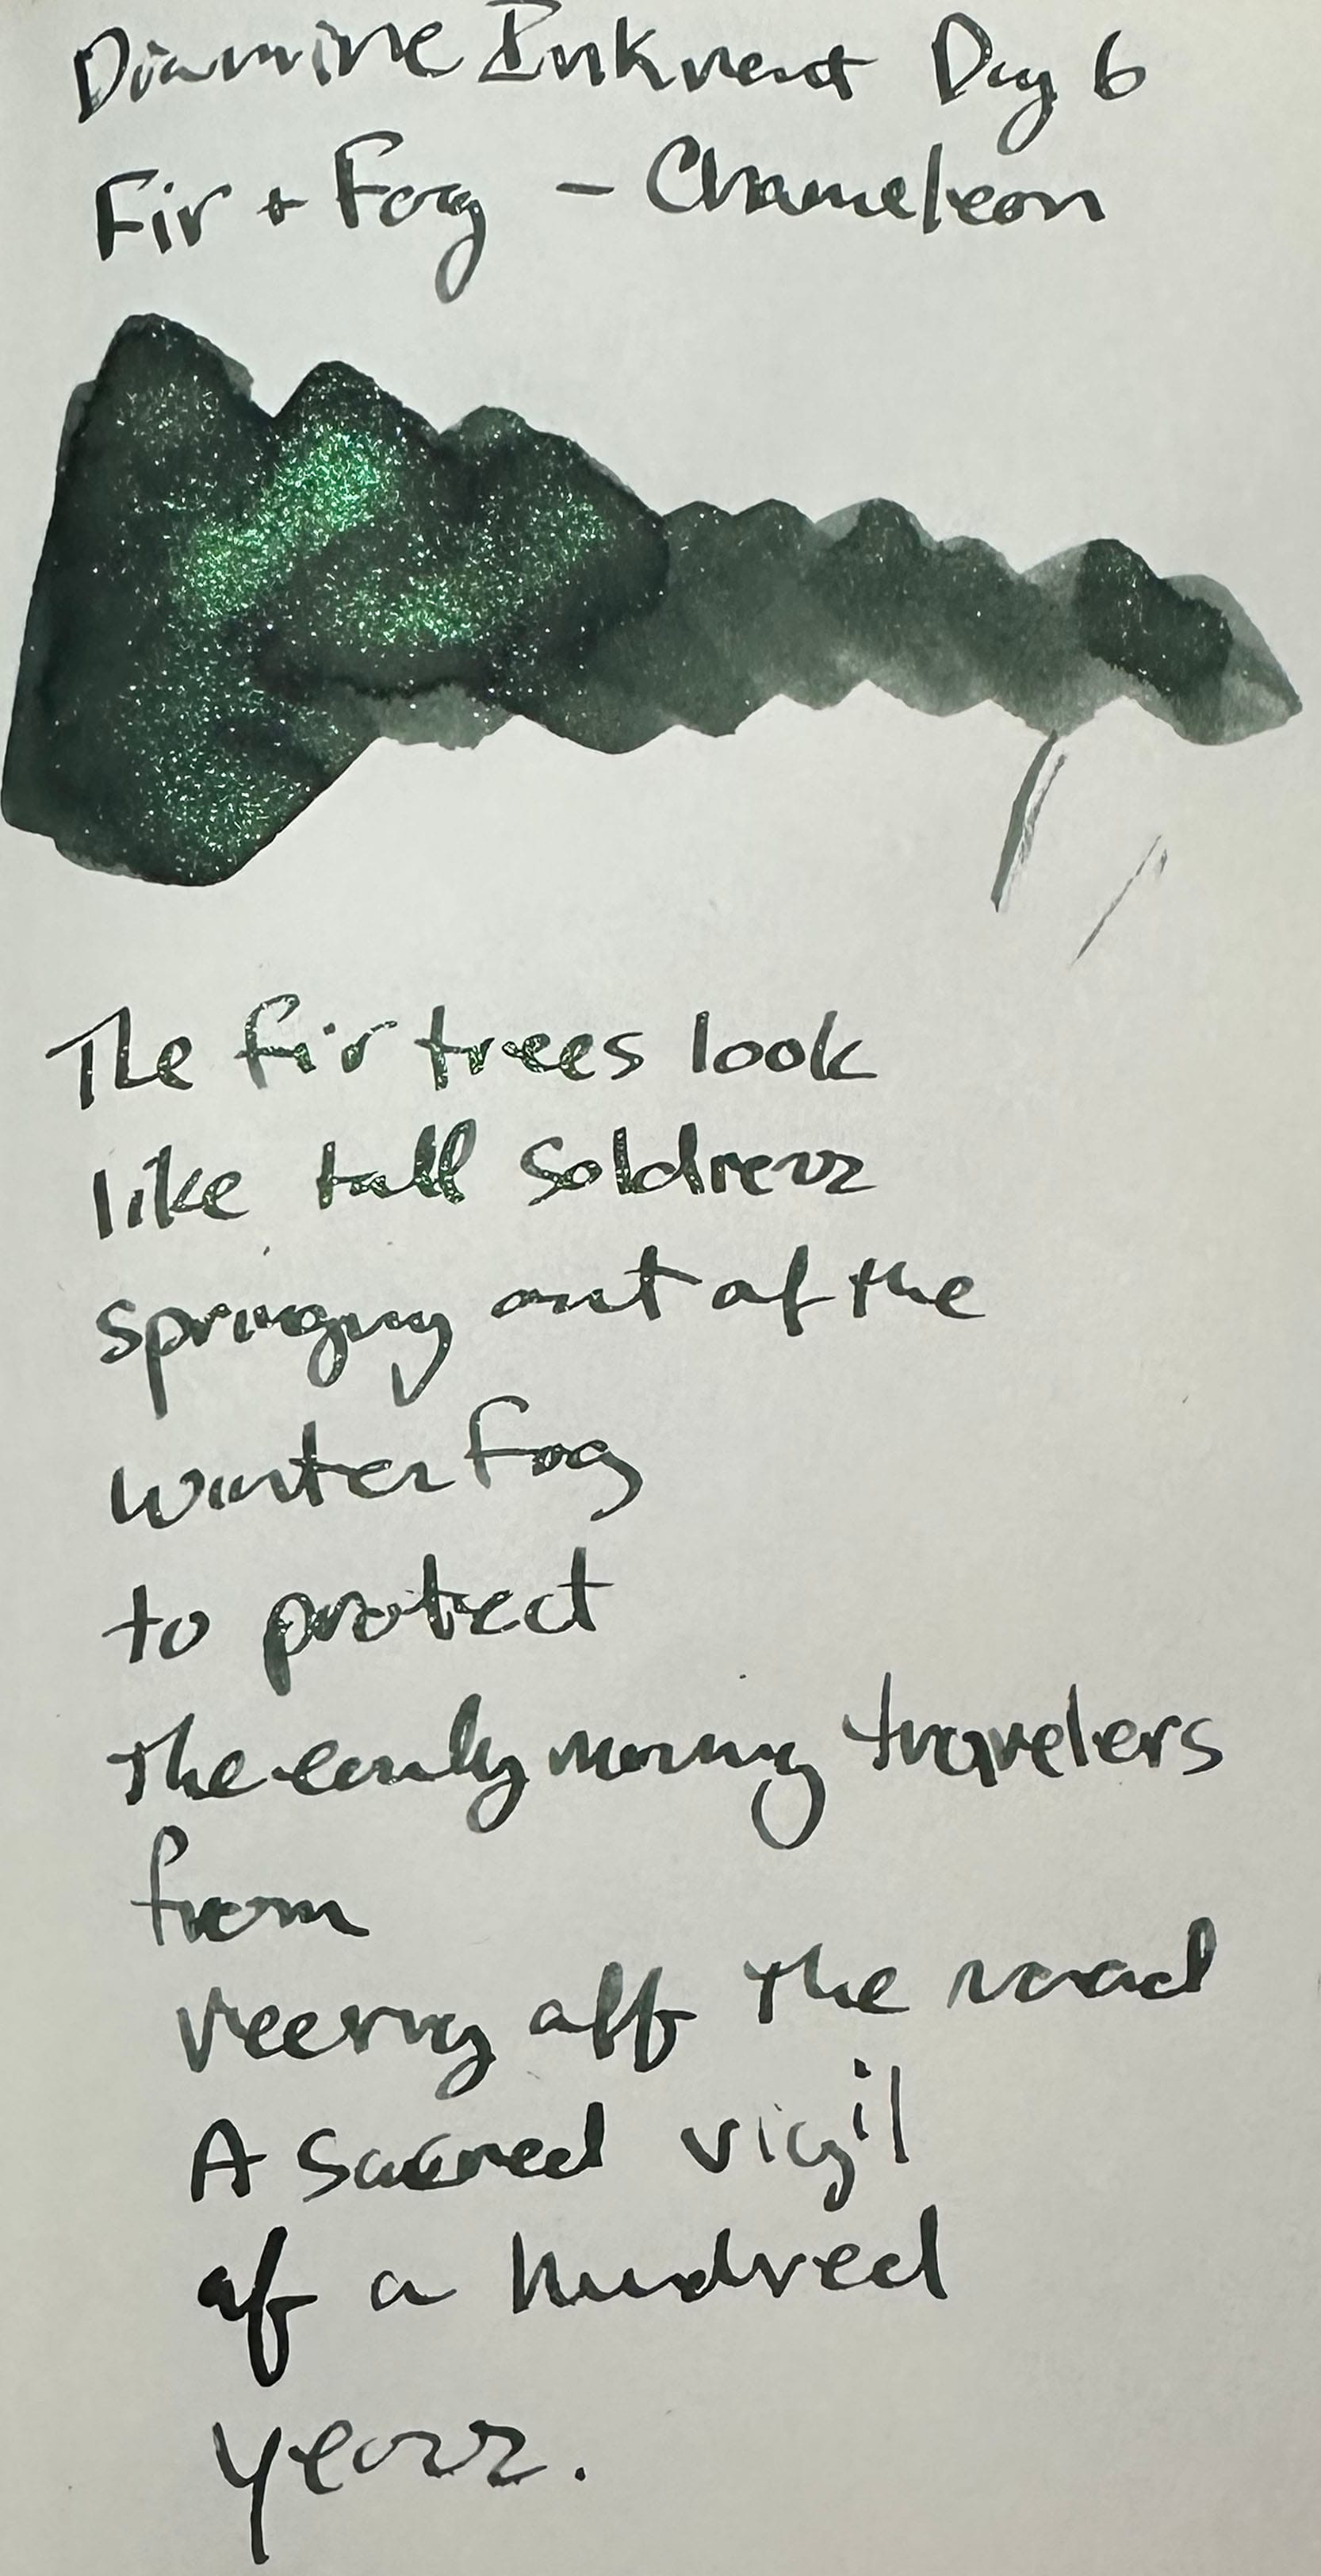 Diamine Inkvent Day 6
Fir + Fog - Chameleon
The fir trees look
like tall soldiers
springing out of the
winter fog
to protect
the early morning travelers
from
veering off the road
A sacred vigil
of a hundred
years.